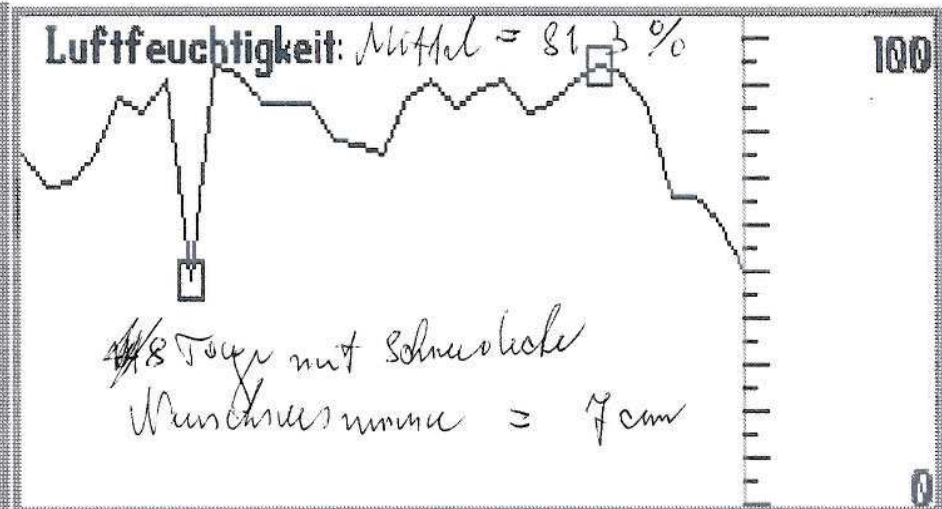 Luftfeuchtigkeit: Mittel = 81,3 %
100
8 Tage mit Schneedecke
Neuschneesumme = 7 cm
0